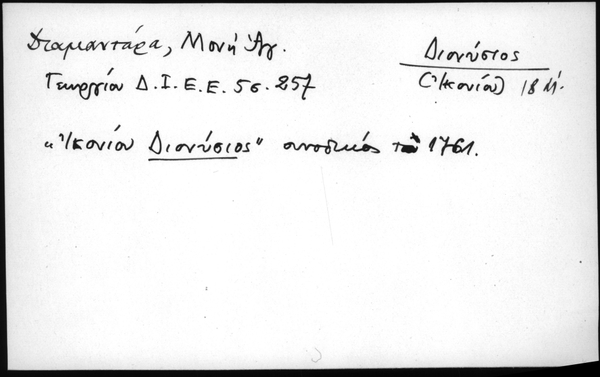 Διαμαντάρα, Μονὴ Ἁγ.
Γεωργίου Δ.Ι.Ε.Ε. 5 σ. 257
Διονύσιος
(Ἰκονίου) 18 Μ.
"Ἰκονίου Διονύσιος" συνοδικός 1761.